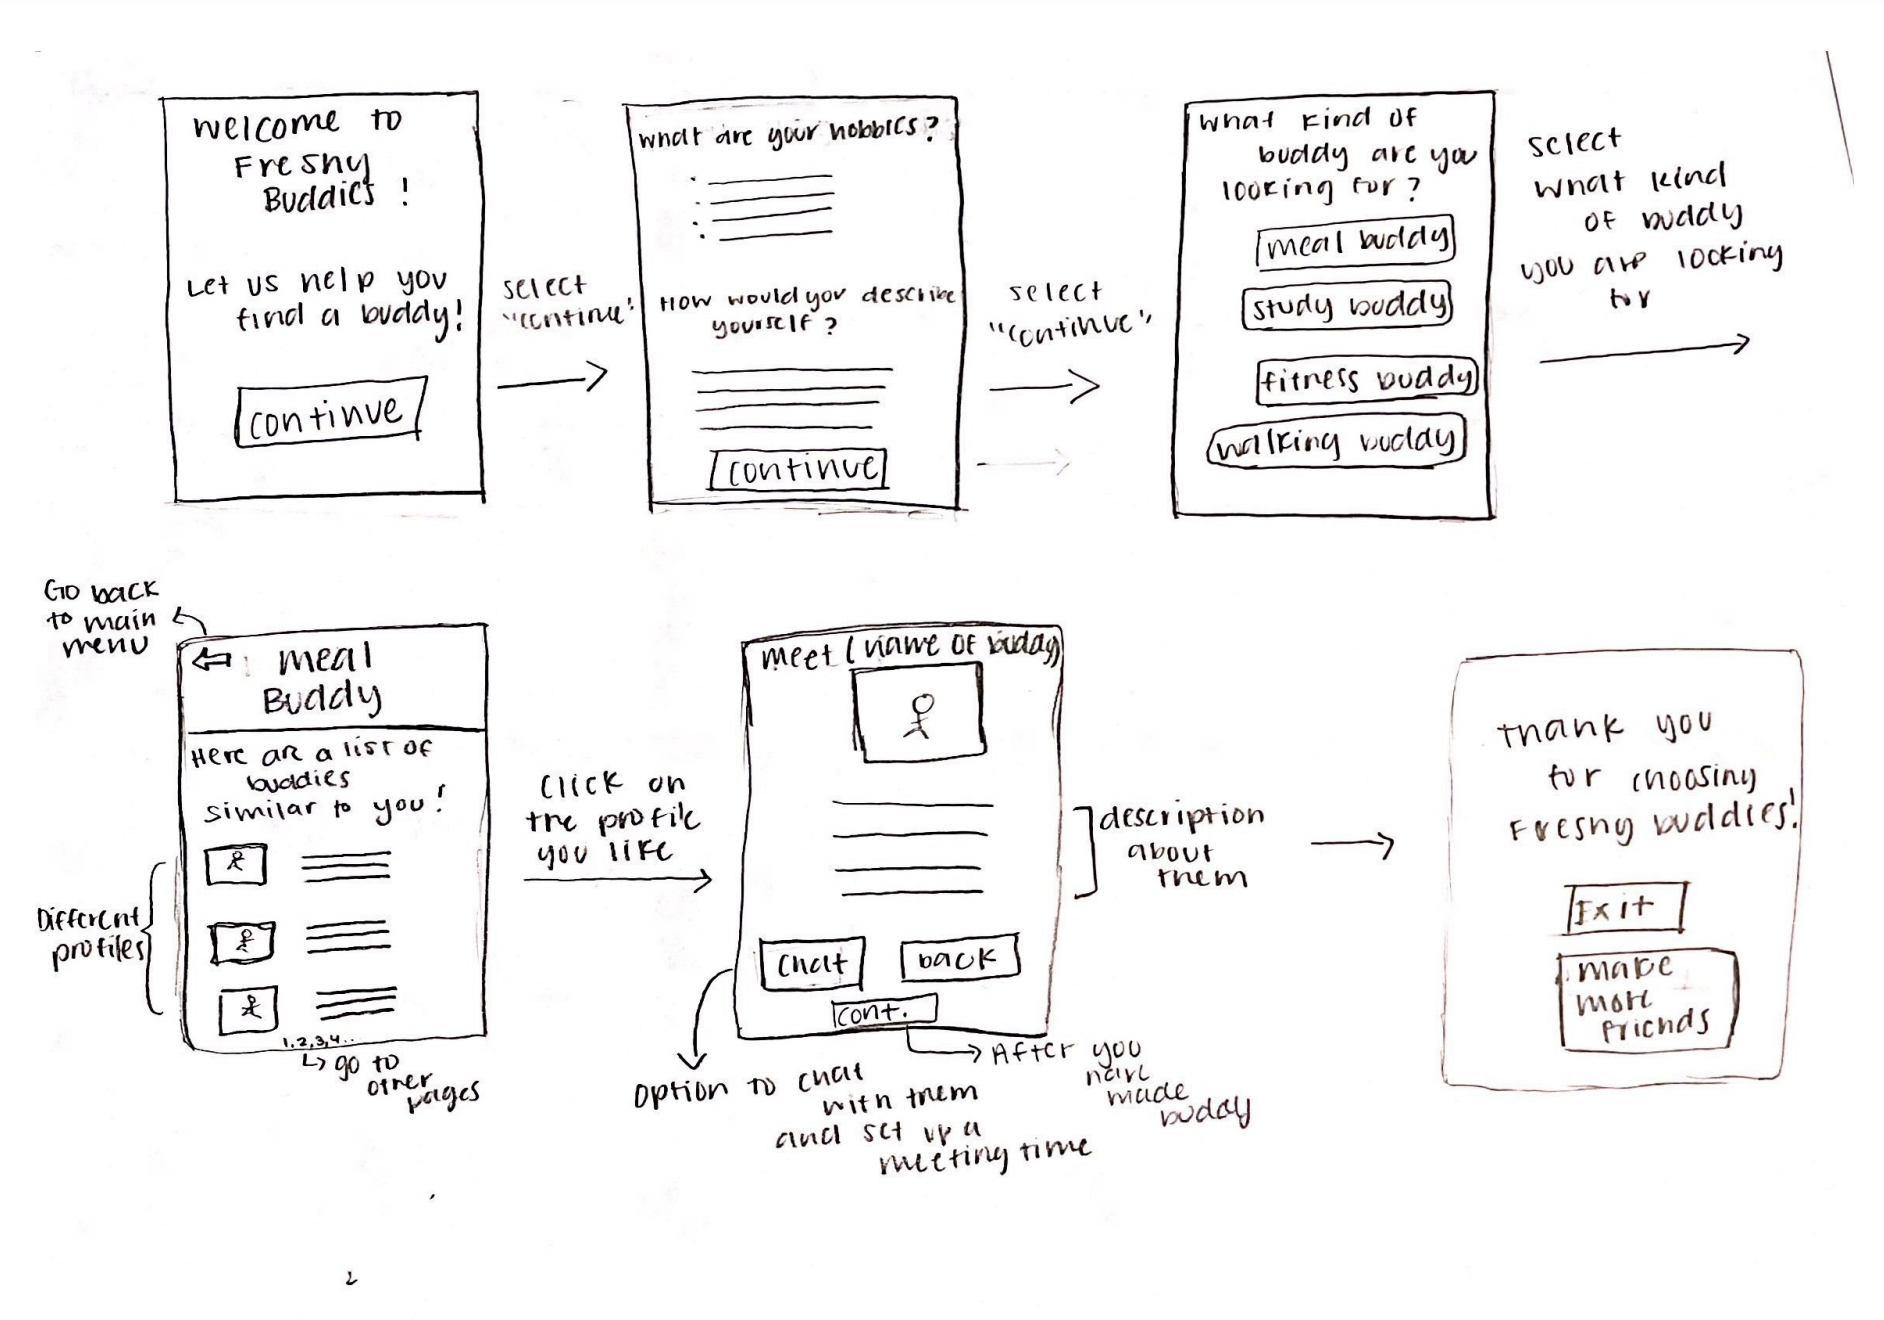 Welcome to
Freshy
Buddies !
Let us help you
find a buddy!
continue
select
"continue"
What are your hobbies?
How would you describe
yourself ?
continue
select
"continue"
What kind of
buddy are you
looking for ?
meal buddy
study buddy
fitness buddy
walking buddy
select
what kind
of buddy
you are looking
for
Go back
to main
menu
meal
Buddy
Here are a list of
buddies
similar to you !
Different
profiles
1,2,3,4..
go to
other
pages
click on
the profile
you like
meet (name of buddy)
chat
back
cont.
description
about
them
option to chat
with them
and set up a
meeting time
After you
have
made
buddy
Thank you
for choosing
Freshy buddies!
Exit
make
more
friends